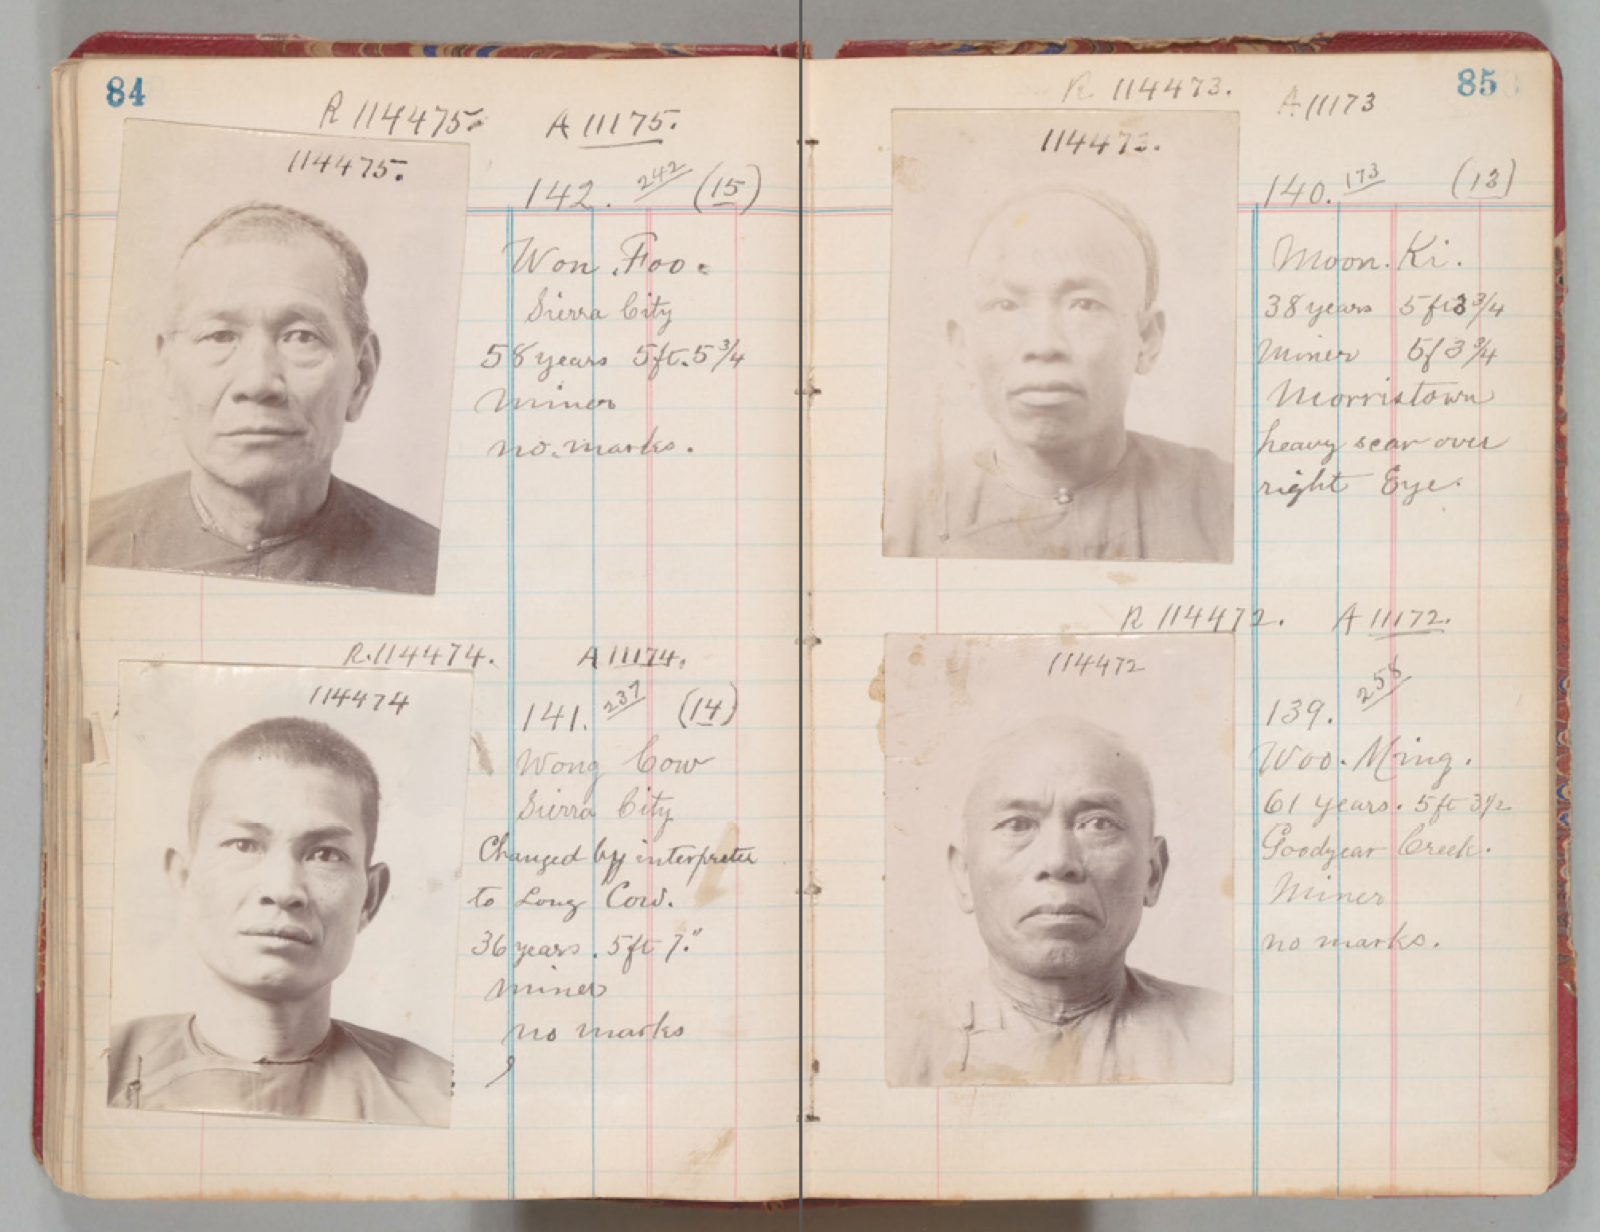 84
R 114475.
A 11175.
114475.
142. 242 (15)
Won Foo.
Sierra City
58 years 5ft. 5 3/4
miner
no marks.
R. 114474.
A 11174.
114474
141. 237 (14)
Wong Cow
Sierra City
Changed by interpreter
to Long Cow.
36 years. 5ft 7."
miner
no marks
85
R 114473.
A 11173
114473.
140. 173 (13)
Moon. Ki.
38 years 5ft 3 3/4
Miner 5f 3 3/4
Morristown
heavy scar over
right Eye.
R 114472.
A 11172.
114472
139. 258
Woo. Ming.
61 years. 5ft 3 1/2
Goodyear Creek.
Miner
no marks.